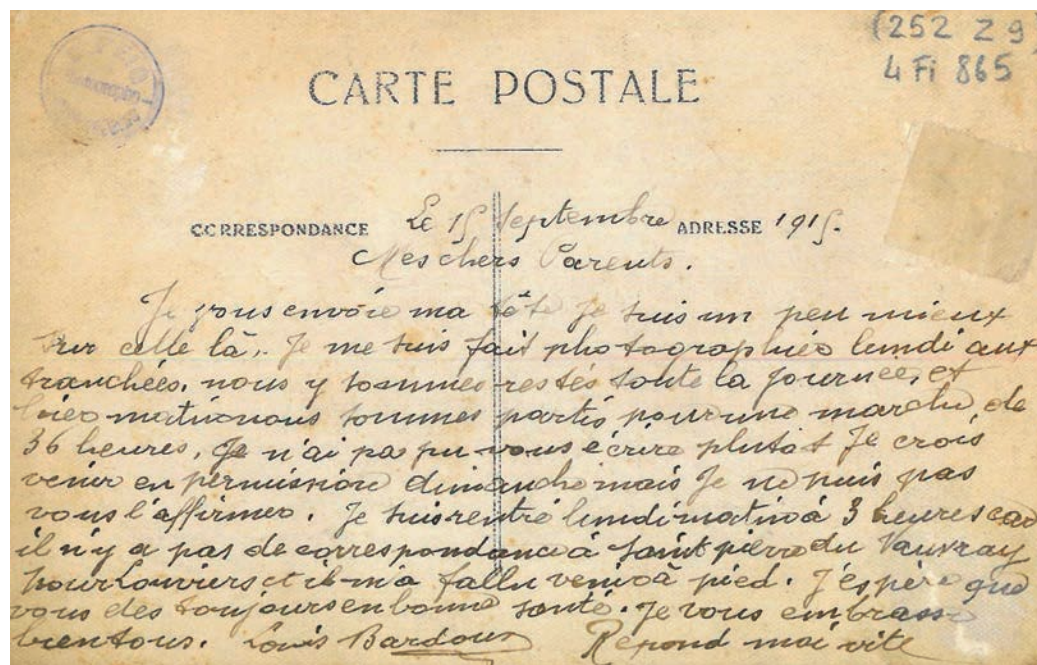 (252 Z 9)
4 Fi 865
CARTE POSTALE
CORRESPONDANCE
Le 15 Septembre
ADRESSE
1915.
Mes chers Parents.
Je vous envoie ma tête je suis un peu mieux
sur celle là. Je me suis fait photographier lundi aux
tranchées. nous y sommes restés toute la journée, et
hier matin nous sommes partis pour une marche de
36 heures, Je n'ai pas pu vous écrire plutôt Je crois
venir en permission dimanche mais Je ne puis pas
vous l'affirmer. Je suis rentré lundi matin à 3 heures car
il n'y a pas de correspondance à Saint pierre du Vauvray
pour Louviers et il m'a fallu venir à pied. J'espère que
vous êtes toujours en bonne santé. Je vous embrasse
bien tous. Louis Bardoux Répond moi vite